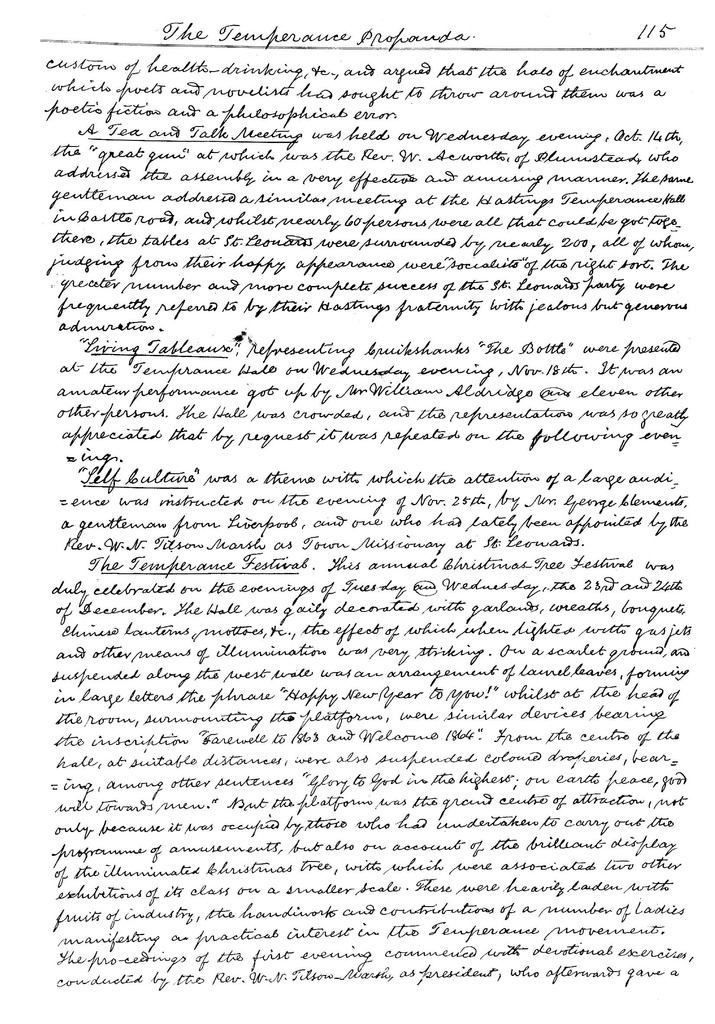 The Temperance Propanda. 115
custom of health-drinking, &c., and argued that the halo of enchantment
which poets and novelists had sought to throw around them was a
poetic fiction and a philosophical error.
A Tea and Talk Meeting was held on Wednesday evening, Oct. 14th,
the "great gun" at which was the Rev. W. Acworth, of Plumstead, who
addressed the assembly in a very effective and amusing manner. The same
gentleman addressed a similar meeting at the Hastings Temperance Hall
in Castle road, and whilst nearly 60 persons were all that could be got toge-
there, the tables at St. Leonards were surrounded by nearly 200, all of whom,
judging from their happy appearance were "socialists" of the right sort. The
greater number and more complete success of the St. Leonards party were
frequently referred to by their Hastings fraternity with jealous but generous
admiration.
"Living Tableaux", representing Cruikshanks "The Bottle" were presented
at the Temprance Hall on Wednesday evening, Nov. 18th. It was an
amateur performance got up by Mr William Aldridge and eleven other
other persons. The Hall was crowded, and the representation was so greatly
appreciated that by request it was repeated on the following even=
=ing.
"Self Culture" was a theme with which the attention of a large audi=
=ence was instructed on the evening of Nov. 25th, by Mr. George Clements,
a gentleman from Liverpool, and one who had lately been appointed by the
Rev. W. N. Tilson Marsh as Town Missionary at St. Leonards.
The Temperance Festival. This annual Christmas Tree Festival was
duly celebrated on the evenings of Tuesday and Wednesday, the 23rd and 24th
of December. The Hall was gaily decorated with garlands, wreaths, bouquets,
chinese lanterns, mottoes, &c., the effect of which when lighted with gas jets
and other means of illumination was very striking. On a scarlet ground, and
suspended along the west wall was an arrangement of laurel leaves, forming
in large letters the phrase "Happy New Year to You!" whilst at the head of
the room, surmounting the platform, were similar devices bearing
the inscription "Farewell to 1863 and Welcome 1864". From the centre of the
hall, at suitable distances, were also suspended coloured draperies, bear=
=ing, among other sentences "Glory to God in the highest; on earth peace, good
will towards men." But the platform was the grand centre of attraction, not
only because it was occupied by those who had undertaken to carry out the
programme of amusements, but also on account of the brilliant display
of the illuminated Christmas tree, with which were associated two other
exhibitions of its class on a smaller scale. These were heavily laden with
fruits of industry, the handiwork and contributions of a number of Ladies
manifesting a practical interest in the Temperance movement.
The pro-cedings of the first evening commenced with devotional exercises,
conducted by the Rev. W. N. Tilson-Marsh, as president, who afterwards gave a